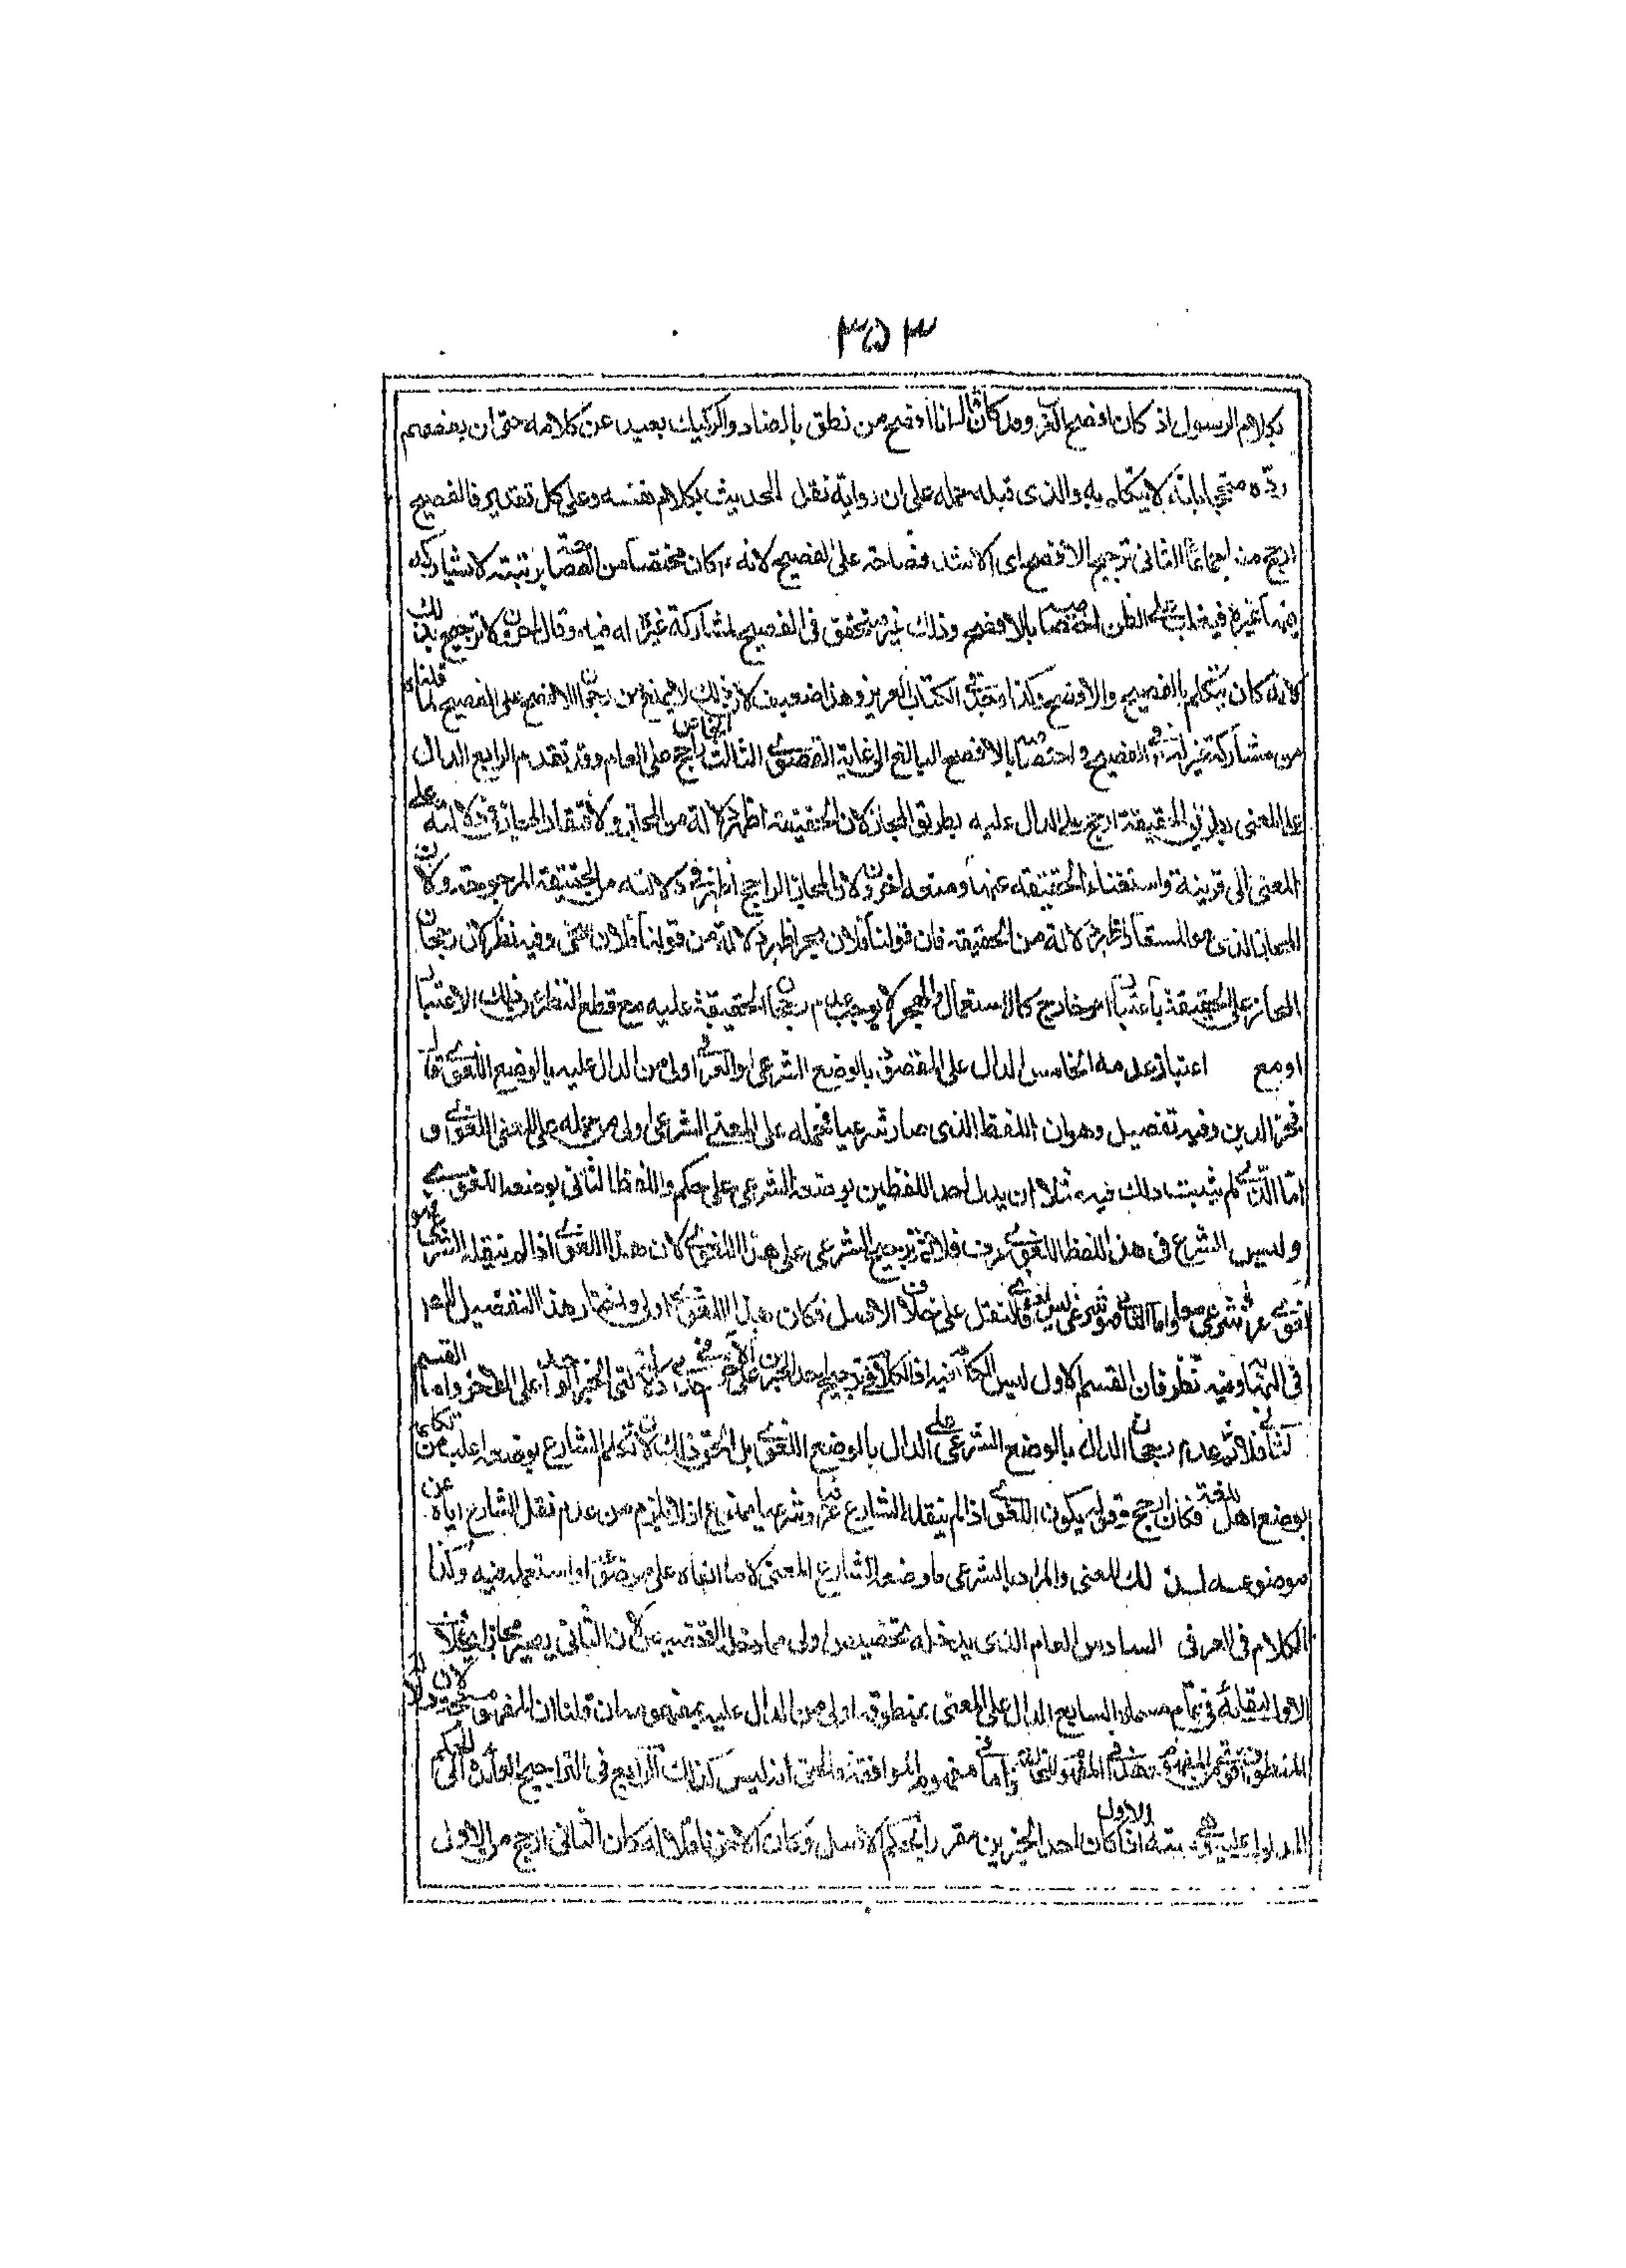 ۳۵۳
بكلام الرسول اذ كان افصح العرب وقد قال انا افصح من نطق بالضاد والركيك بعيد عن كلامه حتى ان بعضهم
ردّه بانه لا يتكلم به والذى قبله حمله على ان رواية نقل الحديث بكلام نفسه وعلى كل تقدير فالفصيح
ارجح منه اجماعا الثانى ترجيح الافصح اى الاشد فصاحة على الفصيح لانه كان مختصا من الفصاحة برتبة لا يشاركه
فيها غيره فيغلب على الظن اختصاصه بالافصح وذلك غير متحقق فى الفصيح لمشاركة غيره له فيه وقال اخرون لا ترجيح بذلك
لانه كان يتكلم بالفصيح والافصح وكذا الكتاب العزيز وهذا ضعيف لان ذلك لا يمنع من رجحان الافصح على الفصيح لما قلناه
من مشاركة غيره له فى الفصيح واختصاصه بالافصح البالغ الى الغاية القصوى الثالث الخاص راجح على العام وقد تقدم الرابع الدال
على المعنى بطريق الحقيقة ارجح من الدال عليه بطريق المجاز لان الحقيقة اظهر دلالة من المجاز ولافتقار المجاز فى دلالته على
المعنى الى قرينة واستغناء الحقيقة عنها ومنعه اخرون لان المجاز الراجح اظهر فى دلالته من الحقيقة المرجوحة ولان
المجاز الذى هو المستعار اظهر دلالة من الحقيقة فان قولنا فلان بحر اظهر دلالة من قولنا فلان سخى وفيه نظر لان رجحان
المجاز على الحقيقة باعتبار امر خارج كالاستعمال لا يوجب عدم رجحان الحقيقة عليه مع قطع النظر عن ذلك الاعتبار
او مع اعتبار عدمه الخامس الدال على المقصود بالوضع الشرعى او العرفى اولى من الدال عليه بالوضع اللغوى قال
فخر الدين وفيه تفصيل وهو ان اللفظ الذى صار شرعيا فحمله على المعنى الشرعى اولى من حمله على المعنى اللغوى و
اما الذى لم يثبت ذلك فيه مثلا ان يدل احد اللفظين بوضعه الشرعى على حكم واللفظ الثانى بوضعه اللغوى
وليس للشرع فى هذا اللفظ اللغوى عرف فلا ثم ترجيح الشرعى على هذا اللغوى لان هذا اللغوى اذا لم ينقله الشرع فهو
لغوى عرفى شرعى واما الثانى فهو شرعى ليس بلغوى فالنقل على خلاف الاصل فكان هذا اللغوى اولى واختار هذا التفصيل
فى النهاية وفيه نظر فان القسم الاول ليس الكلام فيه اذ الكلام فى ترجيح احد الخبرين على الاخر دلالتى الخبر الواحد على الاخر واما القسم
الثانى فلا ثم عدم رجحان الدال بالوضع الشرعى على الدال بالوضع اللغوى بل الحق ذلك لان تكلم الشارع بوضعه اغلب من تكلمه
بوضع اهل اللغة فكان ارجح وقوله بكون اللغوى اذا لم ينقله الشارع عرفيا وشرعيا ممنوع اذ لا يلزم من عدم نقل الشارع اياه عن
موضوعه لذلك المعنى والمراد بالشرعى ما وضعه الشارع لمعنى لا ما ابقاه على موضوعه او استعمله فيه وكذا
الكلام فى العرفى السادس العام الذى لم يدخله تخصيص اولى مما دخله التخصيص لان الثانى يصير مجازا بخلاف
الاول لبقائه فى تمام مسماه السابع الدال على المعنى بمنطوقه اولى من الدال عليه بمفهومه ان قلنا ان المفهوم حجة لان دلالة
المنطوق اقوى من المفهوم هذا فى مفهوم المخالفة واما مفهوم الموافقة والمعنى اذ ليس كذلك الرابع فى التراجيح العائدة الى الحكم
المدلول عليه وهى الاول اذا كان احد الخبرين مقررا لحكم الاصل وكان الاخر ناقلا له كان الثانى ارجح من الاول